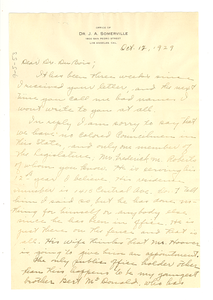 OFFICE OF
DR. J. A. SOMERVILLE
LOS ANGELES, CAL.
Oct. 12, 1929
Dear Dr. DuBois:
It has been three weeks since
I received your letter, and the next
time you call me bad names I
won't write to you at all.
In reply I am sorry to say that
we have no colored Councilman in
this State, and only one member of
the Legislature, Mr. Frederick M. Roberts
whom you know. He is serving his
12th year I believe. His residence
number is
him I said as put he has done
thing for himself or anybody else
since he has been in office. He is
just there on the fence and that is
all. His wife thinks that Mr. Hoover
is going to give him an appointment.
The only public office holder other
than this happens to be my youngest
brother Bert McDonald, who has